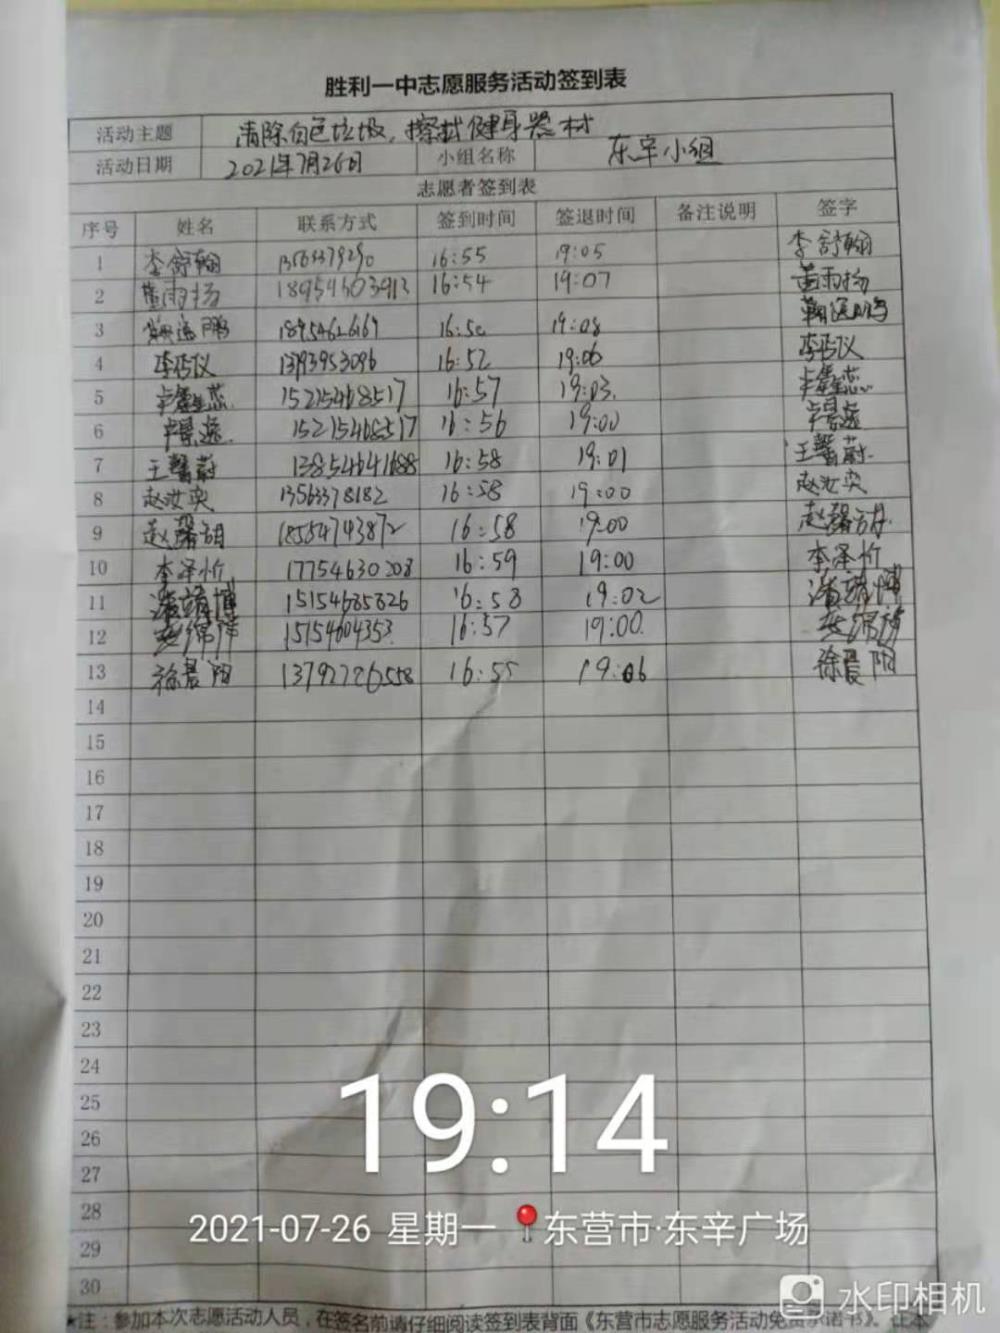 胜利一中志愿服务活动签到表
活动主题 清除白色垃圾，擦拭健身器材
活动日期 2021年7月26日 小组名称 东辛小组
志愿者签到表
序号 姓名 联系方式 签到时间 签退时间 备注说明 签字
1 李舒翰 16:55 19:05 李舒翰
2 董雨扬 18954603913 16:54 19:07 董雨扬
3 18954626169 19:08
4 13793953096 16:52 19:06
5 15215468517 16:57 19:03
6 15215468517 16:56 19:00
7 王馨蔚 13854641688 16:58 19:01 王馨蔚
8 赵汝奕 13563378182 16:58 19:00 赵汝奕
9 18554743872 16:58 19:00
10 李泽忻 17754630208 16:59 19:00 李泽忻
11 15154685826 16:58 19:02
12 15154604353 16:57 19:00
13 徐晨阳 13792726558 16:55 19:06 徐晨阳
14
15
16
17
18
19
20
21
22
23
24
25
26
27
28
29
30
19:14
2021-07-26 星期一 东营市·东辛广场
水印相机
★注：参加本次志愿活动人员，在签名前请仔细阅读签到表背面《东营市志愿服务活动免责承诺书》。